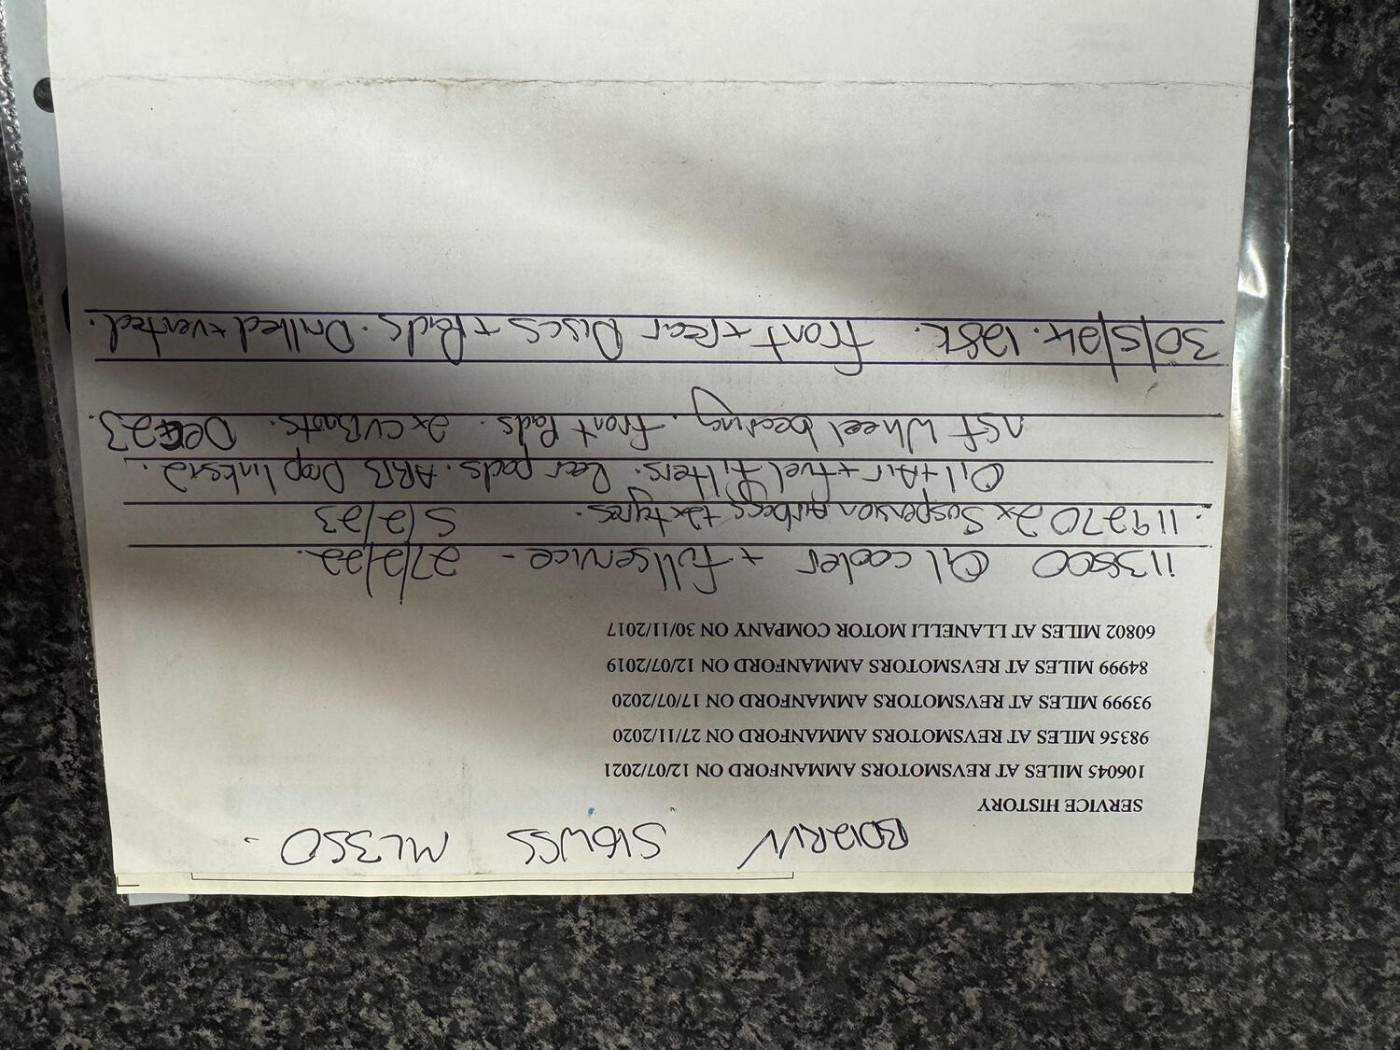 BD12RVV S16WSS ML350.
SERVICE HISTORY
106045 MILES AT REVSMOTORS AMMANFORD ON 12/07/2021
98356 MILES AT REVSMOTORS AMMANFORD ON 27/11/2020
93999 MILES AT REVSMOTORS AMMANFORD ON 17/07/2020
84999 MILES AT REVSMOTORS AMMANFORD ON 12/07/2019
60802 MILES AT LLANELLI MOTOR COMPANY ON 30/11/2017
113800 Oil cooler + full service - 27/2/22.
119270 2x Suspension Airbags + 2x tyres. 5/2/23
Oil + Air + fuel filters. Rear pads. ARB Drop links x2.
NSF Wheel bearing. front Pads. 2x CV Boots. Dec 23.
30/5/24. 128k. front + rear Discs + Pads. Drilled + vented.